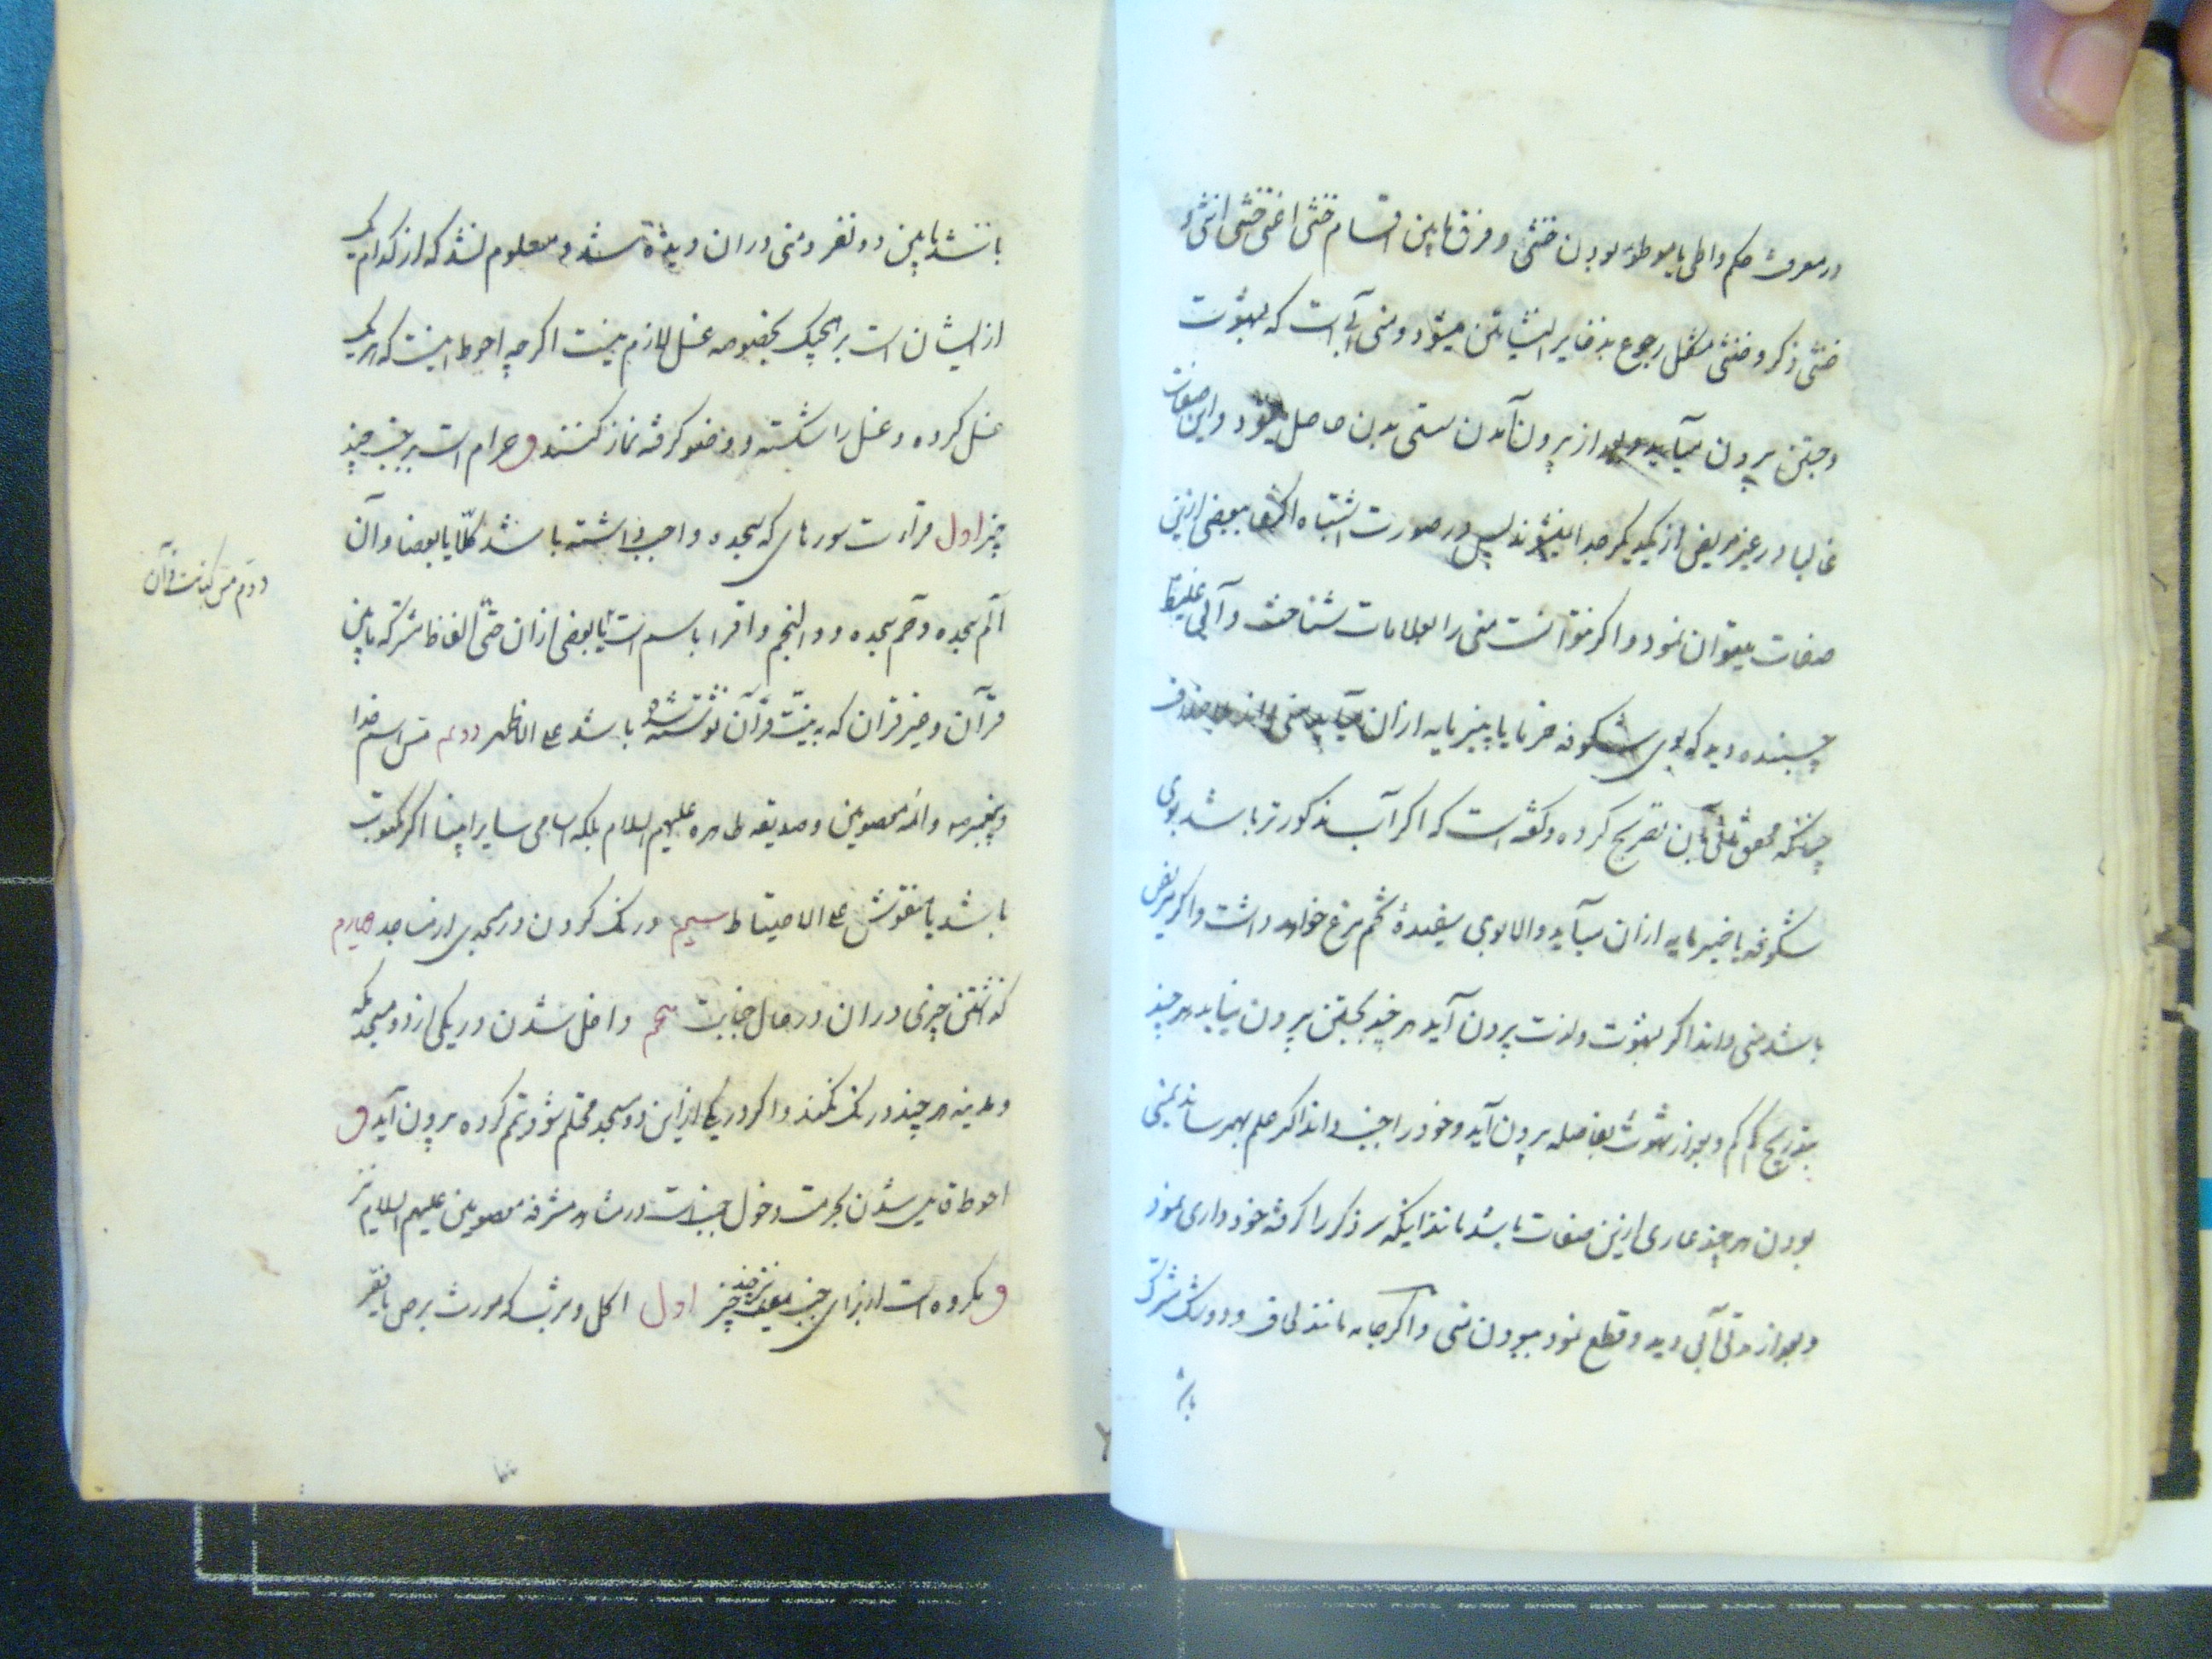 در معرفت حکم واطی یا موطوء بودن خنثی و فرق مابین اقسام خنثی اعنی خنثی انثی و
خنثی ذکر و خنثی مشکل رجوع بذخایر میشود و منی آبی است که بشهوت
و جستن بیرون میآید و بعد از بیرون آمدن سستی بدن حاصل میشود و این صفات
غالبا در غیر مریض از یکدیگر جدا نمیشوند پس در صورت اشتباه اکتفا ببعضی ازین
صفات میتوان نمود و اگر نتوانست منی را بعلامات شناخت و آبی غلیظ
چسبنده دید که بوی شکوفه خرما یا خمیر مایه از آن میآید منی داند بلا خلاف
چنانکه محقق ثانی بآن تصریح کرده و گفته است که اگر آب مذکور تر باشد بوی
شکوفه یا خمیر مایه از آن میآید والا بوی سفیدهٔ تخم مرغ خواهد داشت و اگر مریض
باشد منی داند اگر بشهوت و لذت بیرون آید هر چند بجستن بیرون نیاید هر چند
بتدریج کم کم و بعد از شهوت بفاصله بیرون آید و خود را جنب داند اگر علم بهم رساند بمنی
بودن هر چند عاری ازین صفات باشد مانند اینکه سر ذکر را گرفته خود داری نمود
و بعد از مدتی آبی دید و قطع نمود ببودن منی و اگر جامه مانند لحاف و دوشک مشترک
باشد مابین دو نفر و منی در ان دیده شد و معلوم نشد که از کدام یک
از ایشان است بر هیچیک بخصوصه غسل لازم نیست اگر چه احوط اینست که هر یک
غسل کرده و غسل را شکسته و وضو گرفته نماز کنند و حرام است بر جنب چند
چیز اول قراءت سورهای که سجده واجب داشته باشد کلا یا بعضا و آن
الم سجده و حم سجده و والنجم و اقرا باسم است یا بعضی از ان حتی الفاظ مشترکه مابین
قرآن و غیر قران که به نیت قرآن نوشته شده باشد علی الاظهر دویم مس اسم خدا
و پیغمبر و ائمه معصومین و صدیقه طاهره علیهم السلام بلکه اسامی سایر انبیا اگر مکتوب
باشد یا منقوش علی الاحتیاط سیم درنک کردن در مسجدی از مساجد چهارم
گذاشتن چیزی در ان در حال جنابت پنجم داخل شدن در یکی از دو مسجد مکه
و مدینه هر چند درنک نکند و اگر در یکی از این دو مسجد محتلم شود تیمم کرده بیرون آید و
احوط قایل شدن بحرمت دخول جنب است در مشاهد مشرفه معصومین علیهم السلام نیز
و مکروه است از برای جنب چند چیز اول اکل و شرب که مورث برص یا فقر
دویم مس کتابت قرآن